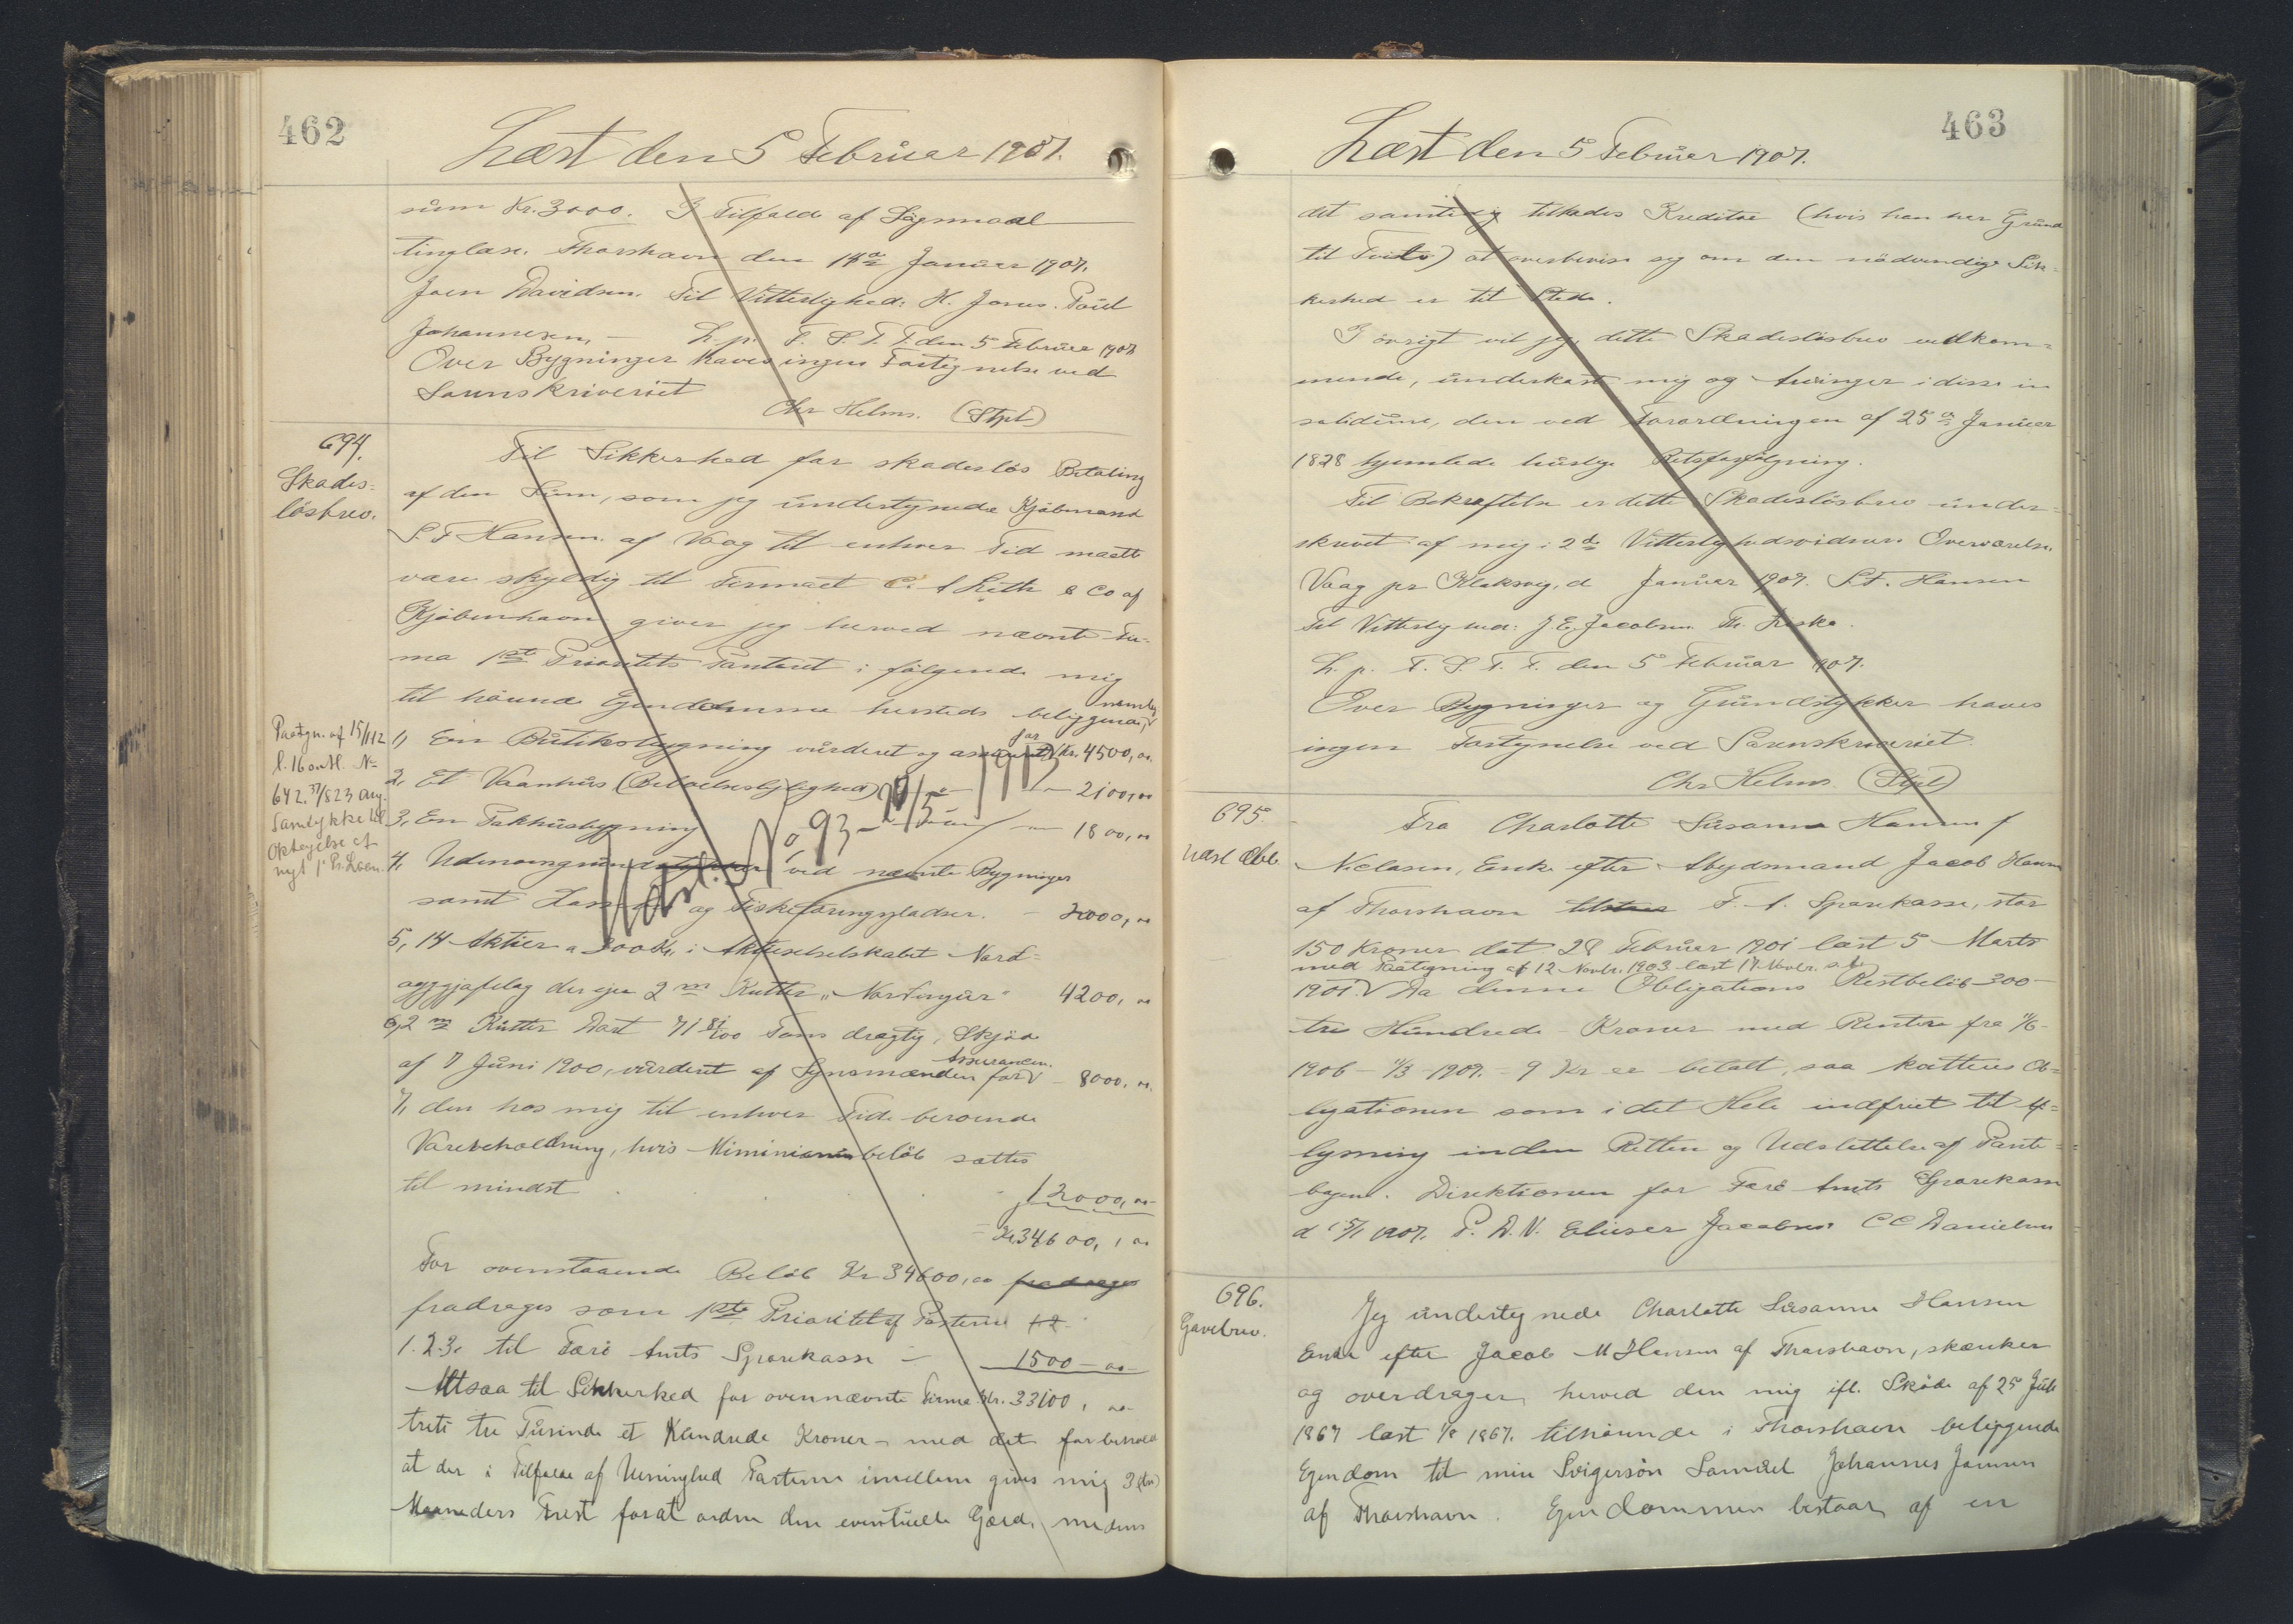 462
Læst den 5 Februar 1907.
sum Kr. 3000. I Tilfælde af Søgsmaal
tinglæses. Thorshavn den 14de Januar 1907.
Joen Davidsen. Til Vitterlighed: H. Jonsen. Poul
Johannesen, – L. p. F. S. T. T. den 5 Februar 1907
Over Bygninger haves ingen Fortegnelse ved
Sorenskriveriet
Chr Helms. (Stpl)
694.
Skades-
løsbrev.
Til Sikkerhed for skadesløs Betaling
af den Sum, som jeg undertegnede Kjøbmand
S. F Hansen af Vaag til enhver Tid maatte
være skyldig til Firmaet C. A & Co af
Kjøbenhavn giver jeg herved nævnte Fir-
ma 1ste Prioritets Panteret i følgende mig
til hørende Ejendomme hersteds beliggende, nemlig
Paategn. af 15/1 12
l. 16 s. M. No
642. 37/823 ang.
Samtykke til
Optagelse af
nyt 1' Pr. Laan.
1, En Butiksbygning vurderet og assureret for Kr. 4500,00
2, Et Vaanhus (Beboelseslejlighed) – 2100,00
3, En Pakhusbygning – 1800,00
4, Udenomsgrundstykker ved nævnte Bygninger
samt og Fisketøringspladser. – 2000,00
Udsl. No 93 – 20/5 – 1913
5, 14 Aktier a 300 Kr, i Aktieselskabet Nord-
oyggjafelag der ejer 2 m Kutter "Nordingur" 4200, 00
6, 2 m Kutter Dart 71 81/100 Tons drægtig, Skjøde
af 7 Juni 1900, vurderet af Assurancen. Synsmænden for – 8000, 00
7, den hos mig til enhver Tid beroende
Varebeholdning, hvis Miminiumsbeløb sættes
til mindst 12000,00
Kr. 34600, 00
For ovenstaaende Beløb Kr 34600,00 fradrages
fradrages som 1ste Prioritet af Posterne 1.2
1. 2. 3. til Færø Amts Sparekasse – 1500 – 00
Altsaa til Sikkerhed for ovennævnte Firma Kr. 33100, 00
treti tre Tusinde et Hundrede Kroner – med det forbehold
at der i Tilfælde af Uenighed Parterne imellem gives mig 3 (tre)
Maaneders Frest forat ordne den eventuelle Gæld, medens
463
Læst den 5 Februar 1907.
det samtidig tillades Kreditor (hvis han har Grund
til Tvivl) at overbevise sig om den nødvendige Sik-
kerhed er til Stede.
I øvrigt vil jeg, dette Skadesløsbrev vedkom-
mende, underkaste mig og Arvinger i disse in
solidum, den ved Forordningen af 25de Januar
1828 hjemlede hurtige Retsforfølgning.
Til Bekræftelse er dette Skadesløsbrev under-
skrevet af mig i 2de Vitterlighedsvidners Overværelse.
Vaag pr Klaksvig, d Januar 1907. S. F. Hansen
Til Vitterlighed: J. E. Jacobsen. Th.
L. p. F. S. T. T. den 5 Februar 1907.
Over Bygninger og Grundstykker haves
ingen Fortegnelse ved Sorenskriveriet.
Chr Helms. (Stpl)
695.
Udsl Obl.
Fra Charlotte Susanne Hansen f
Nielasen, Enke efter Abydsmand Jacob Hansen
af Thorshavn tilstaar F. A. Sparekasse, stor
150 Kroner dat 28 Februar 1901 læst 5 Marts
med Paategning af 12 Novbr. 1903 læst 17 Novbr. s. A.
1901. Da denne Obligations Restbeløb 300 –
tre Hundrede – Kroner med Renter fra 11/6 –
1906 – 11/3 – 1907. – 9 Kr er betalt, saa kvitteres Ob-
ligationen som i det Hele indfriet til Af-
lysning inden Retten og Udslettelse af Pante-
bøgerne. Direktionen for Færø Amts Sparekasse
d 15/1 1907. P. D. V. Elieser Jacobsen CC Danielsen
696.
Gavebrev.
Jeg undertegnede Charlotte Susanne Hansen
Enke efter Jacob M Hansen af Thorshavn, skænker
og overdrager herved den mig ifl. Skøde af 25 Juli
1867 læst 1/8 1867. tilhørende i Thorshavn beliggende
Ejendom til min Svigersøn Samuel Johannes Jansen
af Thorshavn. Ejendommen bestaar af en